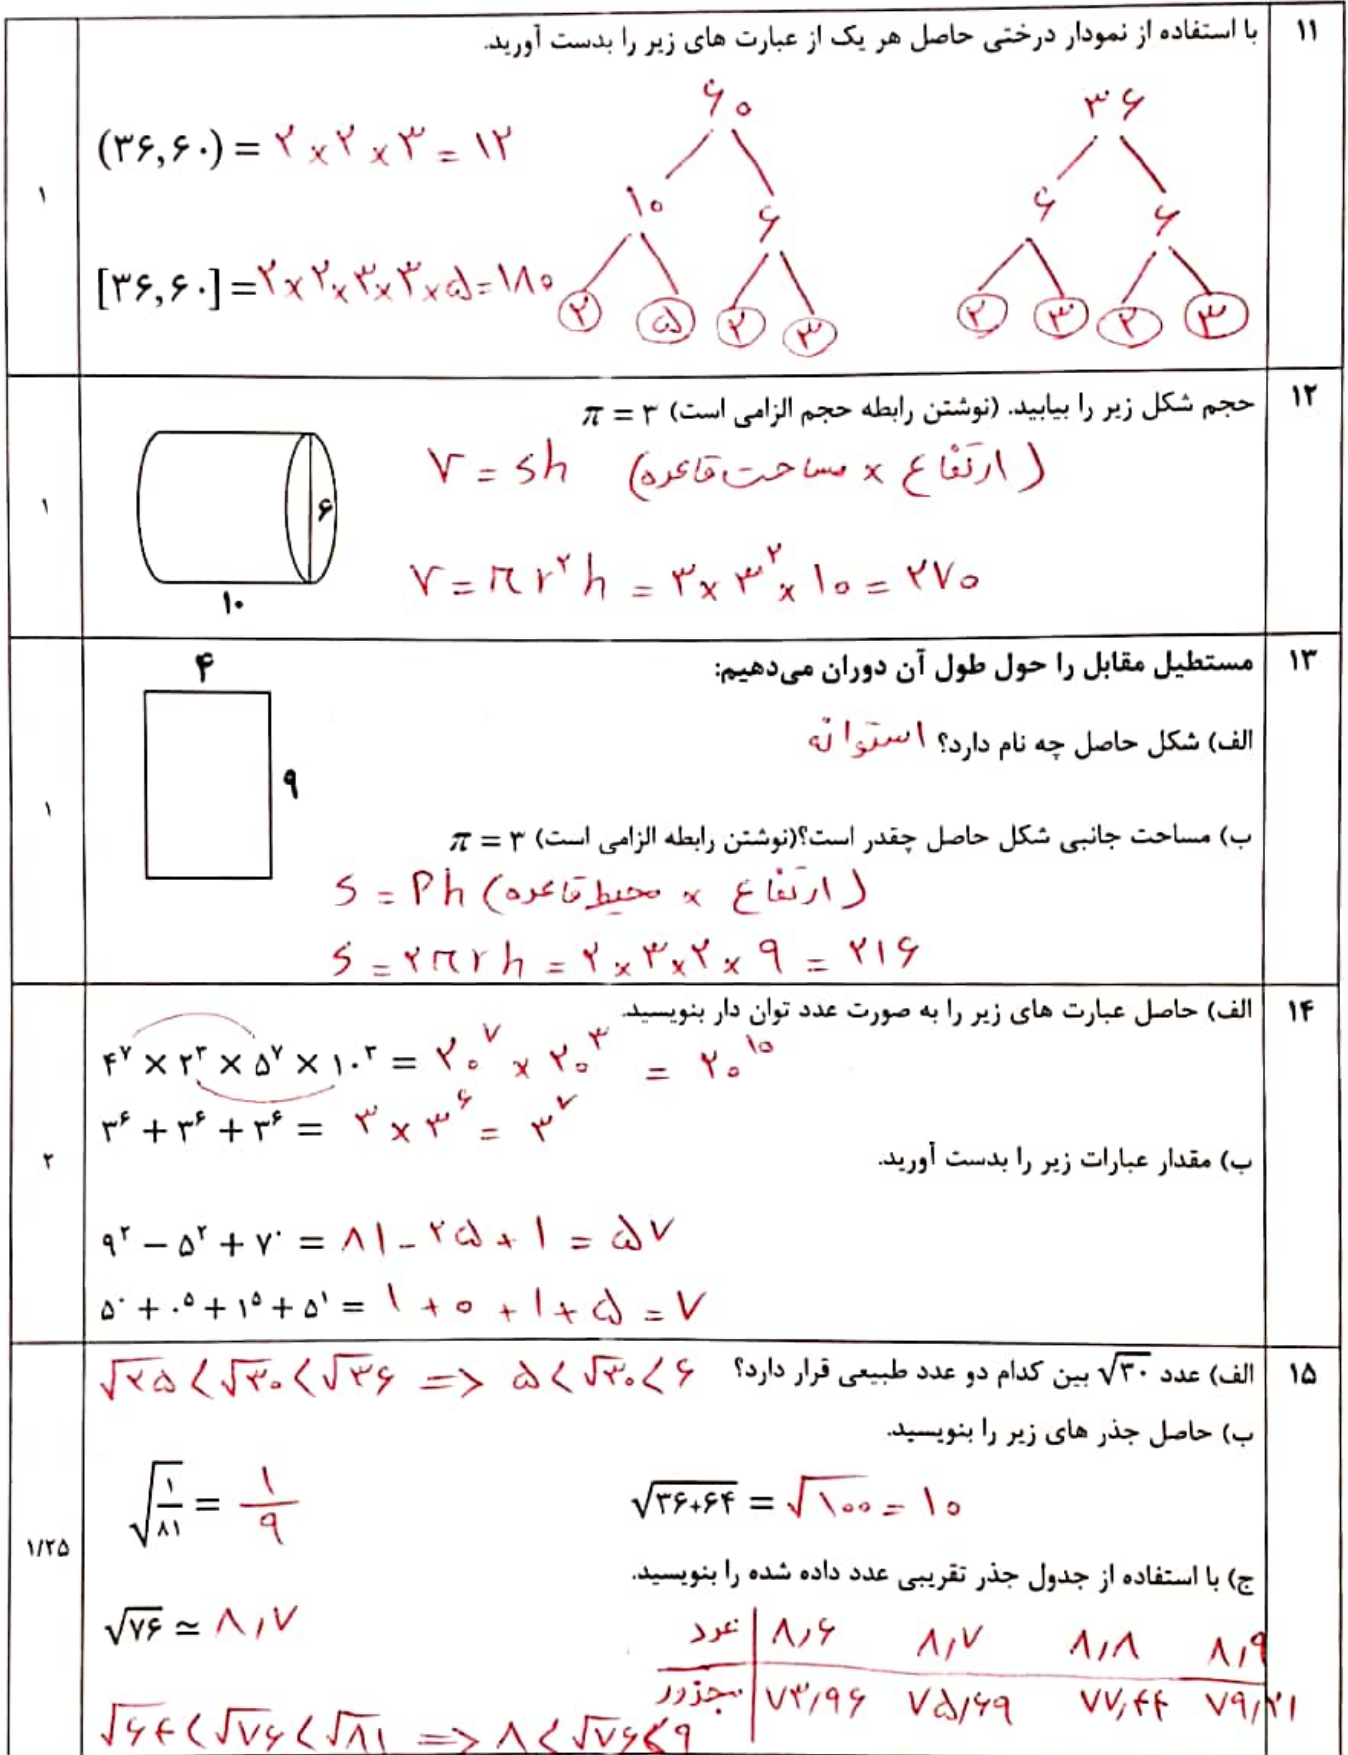 ۱۱ با استفاده از نمودار درختی حاصل هر یک از عبارت های زیر را بدست آورید.
۳۶
۶ ۶
۲ ۳ ۲ ۳
۶۰
۱۰ ۶
۲ ۵ ۲ ۳
(۳۶,۶۰) = ۲ × ۲ × ۳ = ۱۲
۱
[۳۶,۶۰] = ۲ × ۲ × ۳ × ۳ × ۵ = ۱۸۰
۱۲ حجم شکل زیر را بیابید. (نوشتن رابطه حجم الزامی است) π = ۳
V = Sh (ارتفاع × مساحت قاعده)
۶
۱
V = π r^۲ h = ۳ × ۳^۲ × ۱۰ = ۲۷۰
۱۰
۱۳ مستطیل مقابل را حول طول آن دوران می‌دهیم:
۴
الف) شکل حاصل چه نام دارد؟ استوانه
۹
۱
ب) مساحت جانبی شکل حاصل چقدر است؟(نوشتن رابطه الزامی است) π = ۳
S = Ph (ارتفاع × محیط قاعده)
S = ۲πrh = ۲ × ۳ × ۲ × ۹ = ۲۱۶
۱۴ الف) حاصل عبارت های زیر را به صورت عدد توان دار بنویسید.
۴^۷ × ۲^۳ × ۵^۷ × ۱۰^۳ = ۲۰^۷ × ۲۰^۳ = ۲۰^۱۰
۳^۶ + ۳^۶ + ۳^۶ = ۳ × ۳^۶ = ۳^۷
ب) مقدار عبارات زیر را بدست آورید.
۲
۹^۲ − ۵^۲ + ۷^۰ = ۸۱ − ۲۵ + ۱ = ۵۷
۵^۰ + ۰^۵ + ۱^۵ + ۵^۱ = ۱ + ۰ + ۱ + ۵ = ۷
۱۵ الف) عدد √۳۰ بین کدام دو عدد طبیعی قرار دارد؟ √۲۵ < √۳۰ < √۳۶ => ۵ < √۳۰ < ۶
ب) حاصل جذر های زیر را بنویسید.
√(۳۶+۶۴) = √۱۰۰ = ۱۰
√(۱/۸۱) = ۱/۹
۱/۲۵
ج) با استفاده از جدول جذر تقریبی عدد داده شده را بنویسید.
√۷۶ ≃ ۸,۷
عدد | ۸,۶ ۸,۷ ۸,۸ ۸,۹
مجذور | ۷۳,۹۶ ۷۵,۶۹ ۷۷,۴۴ ۷۹,۲۱
√۶۴ < √۷۶ < √۸۱ => ۸ < √۷۶ < ۹